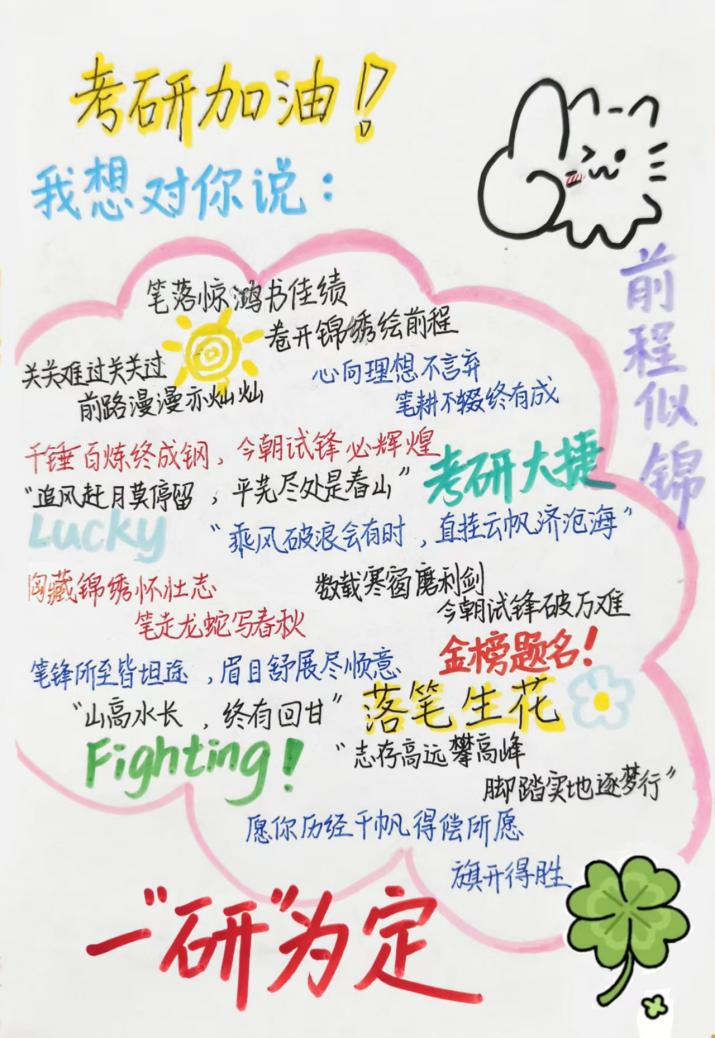 考研加油!
我想对你说：
前程似锦
笔落惊鸿书佳绩
卷开锦绣绘前程
关关难过关关过
前路漫漫亦灿灿
心向理想不言弃
笔耕不辍终有成
千锤百炼终成钢，今朝试锋必辉煌
考研大捷
“追风赶月莫停留，平芜尽处是春山”
Lucky
“乘风破浪会有时，直挂云帆济沧海”
胸藏锦绣怀壮志
笔走龙蛇写春秋
数载寒窗磨利剑
今朝试锋破万难
笔锋所至皆坦途，眉目舒展尽顺意
金榜题名!
“山高水长，终有回甘”
落笔生花
Fighting!
“志存高远攀高峰
脚踏实地逐梦行”
愿你历经千帆得偿所愿
旗开得胜
一“研”为定